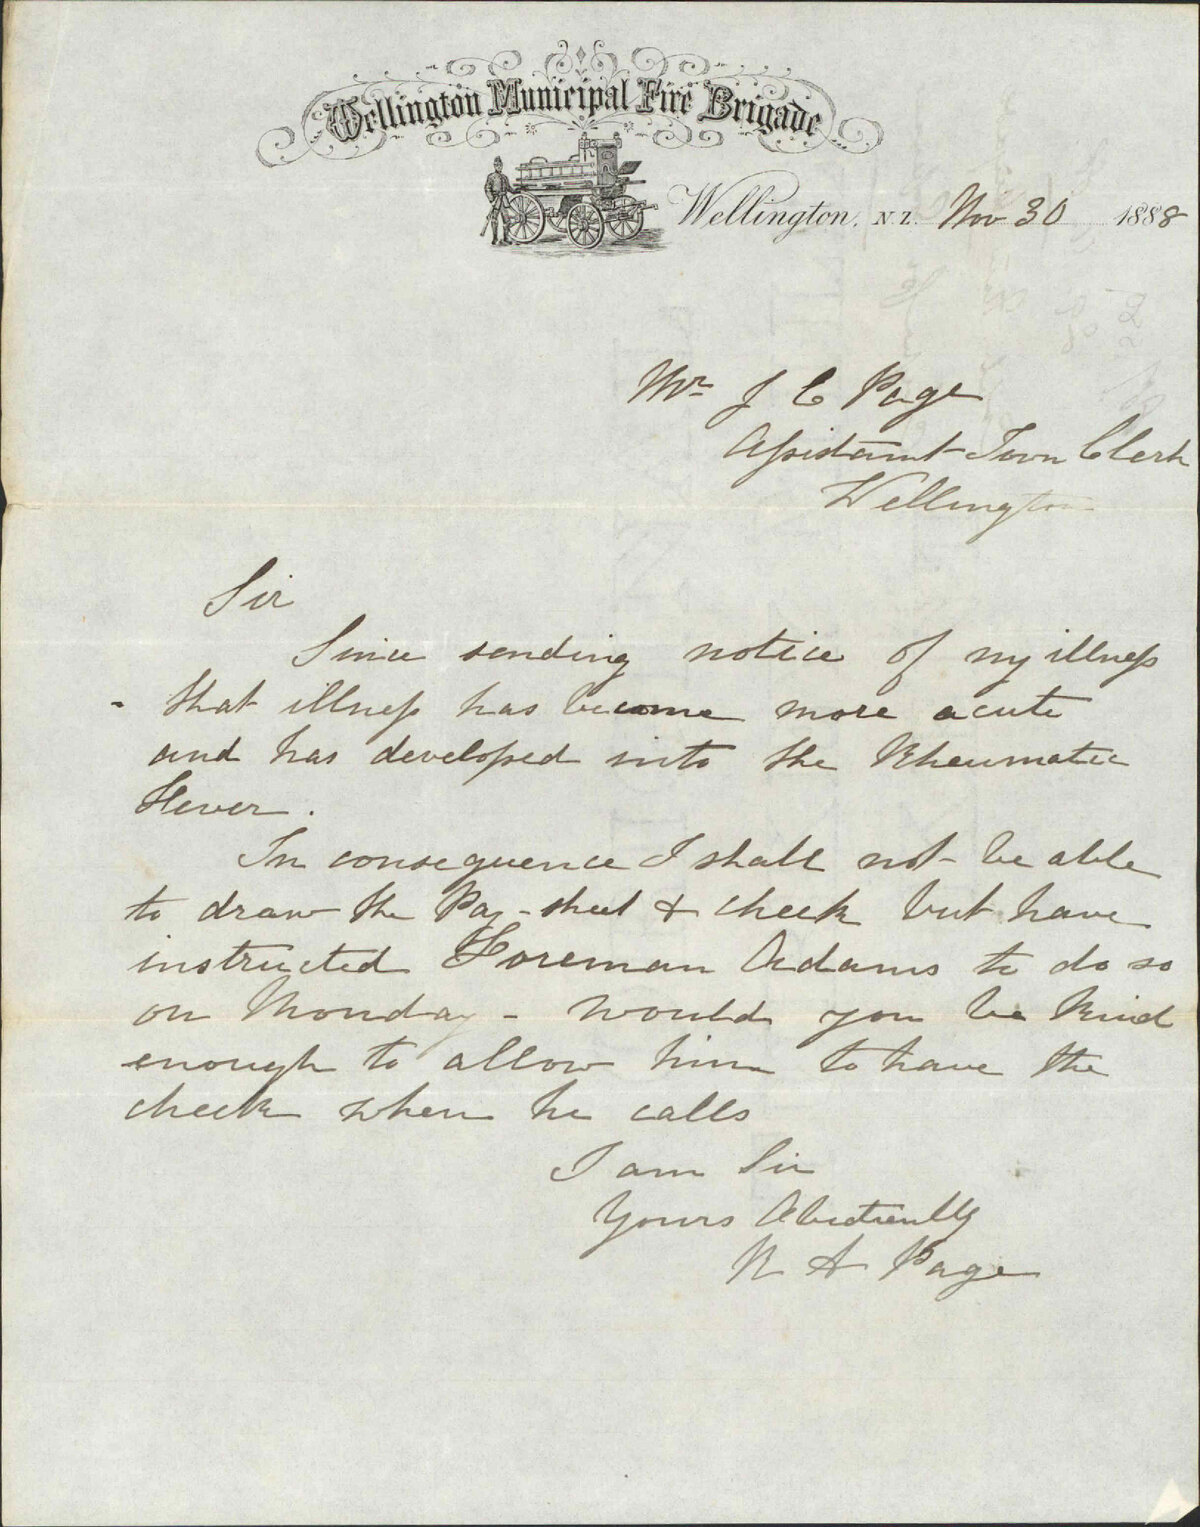 Wellington Municipal Fire Brigade
Wellington, N.Z. Nov 30 1888
Mr J C Page
Assistant Town Clerk
Wellington
Sir
Since sending notice of my illness
- that illness has become more acute
and has developed into the Rheumatic
Fever.
In consequence I shall not be able
to draw the Pay-sheet & check but have
instructed Foreman Adams to do so
on Monday - would you be kind
enough to allow him to have the
check when he calls
I am Sir
Yours Obediently
A Page